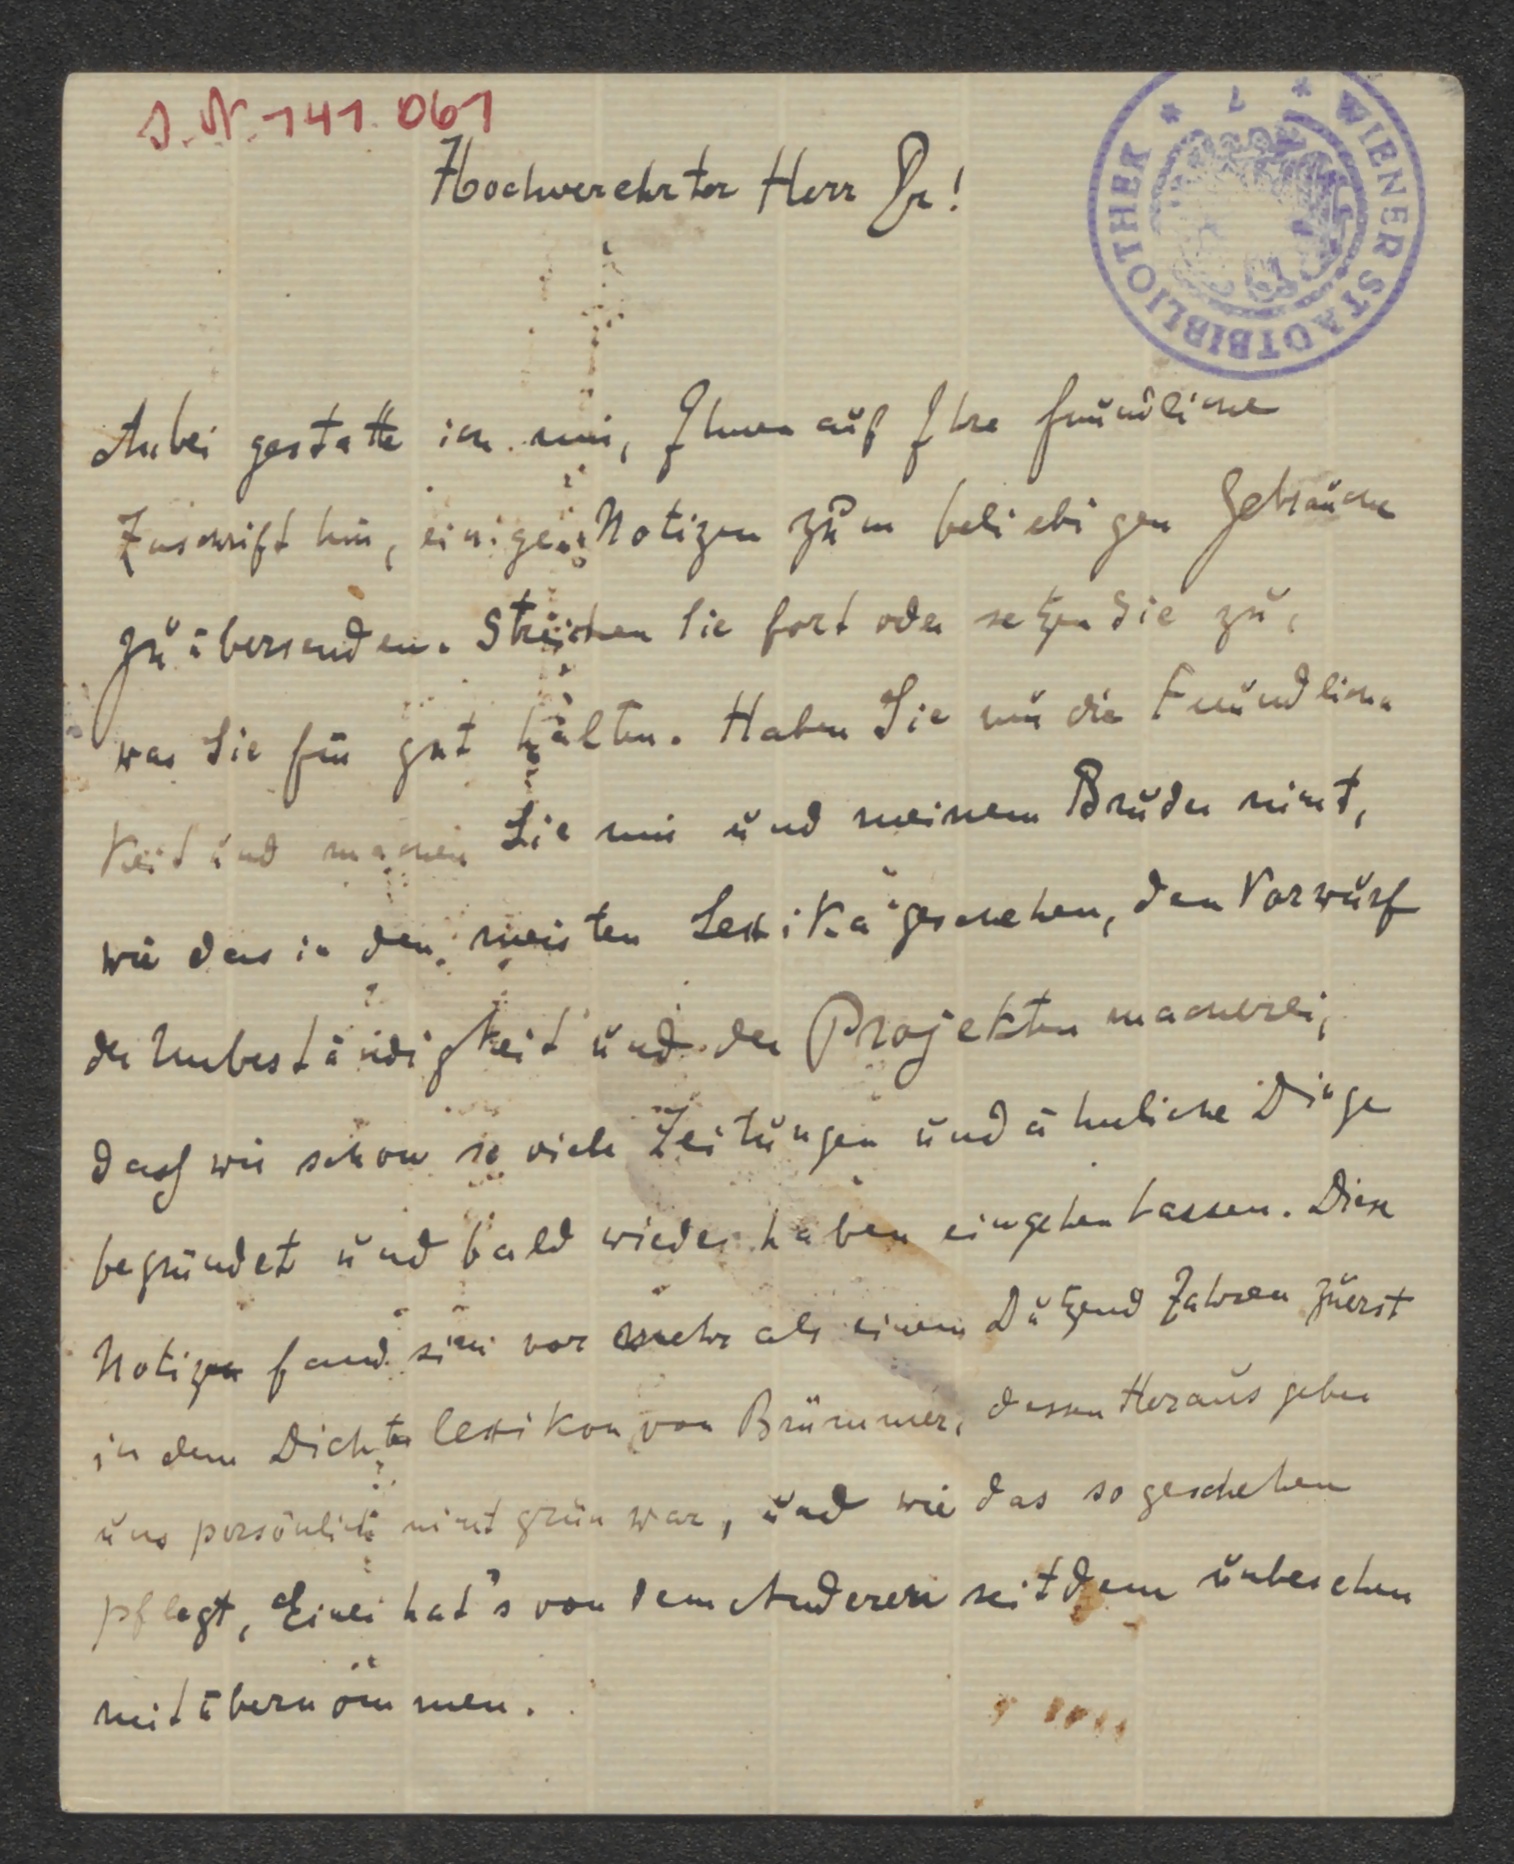 I.N. 141.061
WIENER STADTBIBLIOTHEK
Hochverehrter Herr Dr!
Anbei gestatte ich mir, Ihnen auf Ihre freundliche
Zuschrift hin, einige Notizen zum beliebigen Gebrauche
zu übersenden. Streichen Sie fort oder setzen Sie zu,
was Sie für gut halten. Haben Sie nur die Freundlich-
keit und machen Sie mir und meinem Bruder nicht,
wie das in den meisten Lexika geschehen, den Vorwurf
der Unbeständigkeit und der Projektenmacherei,
daß wir schon so viele Zeitungen und ähnliche Dinge
begründet und bald wieder haben eingehen lassen. Diese
Notizen fand sich vor mehr als einem Dutzend Jahren zuerst
in dem Dichterlexikon von Brümmer, dessen Herausgeber
uns persönlich nicht grün war, und wie das so geschehen
pflegt, Einer hat's von dem Anderen seitdem unbesehen
mitübernommen.